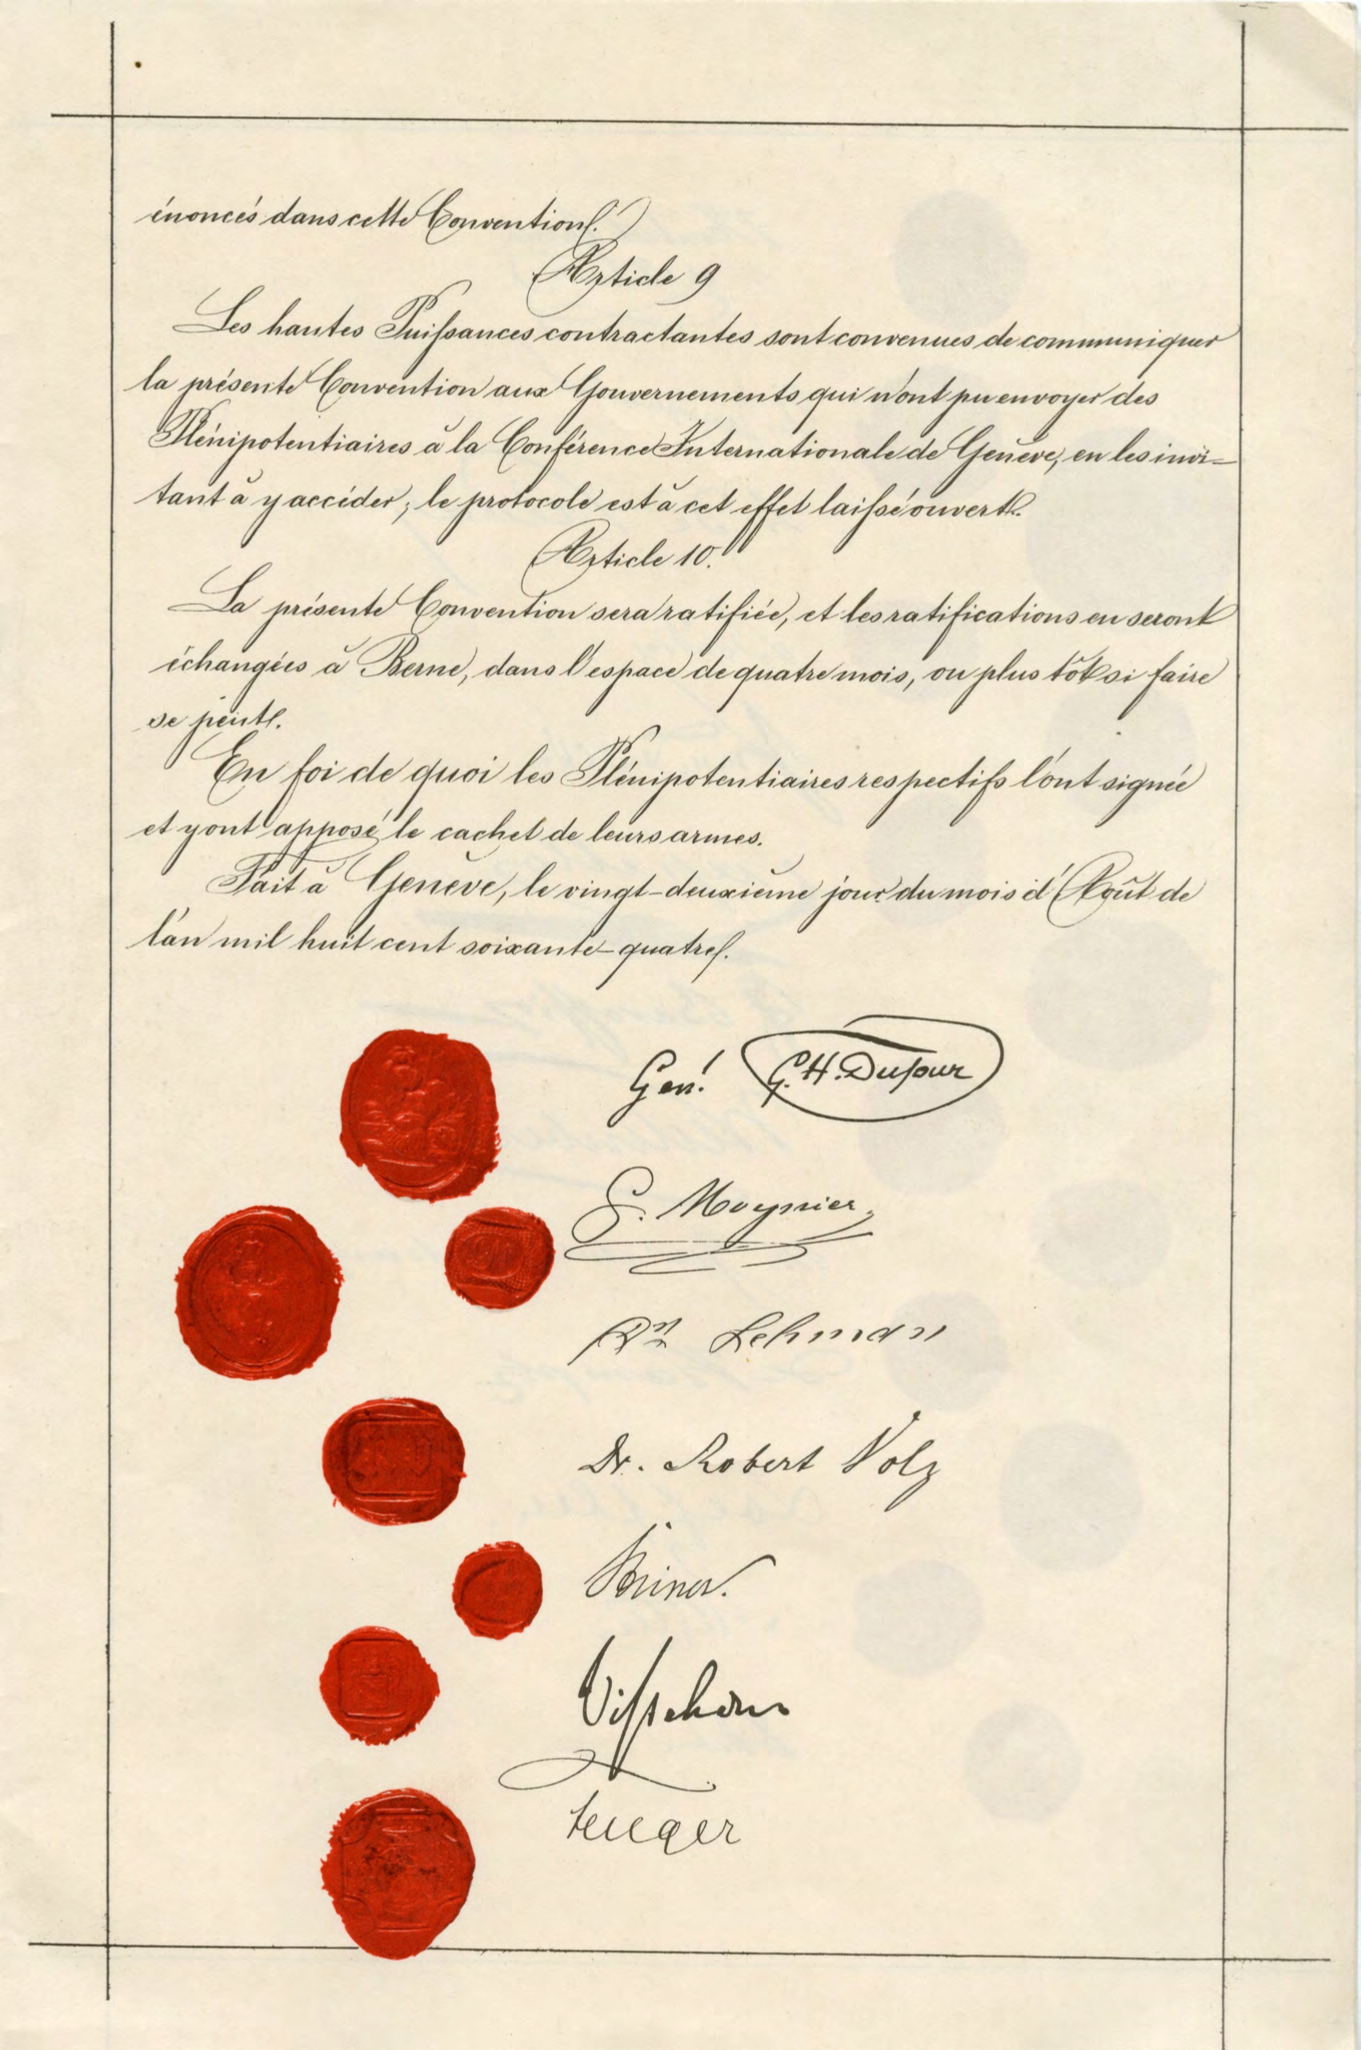 énoncés dans cette Convention.
Article 9
Les hautes Puissances contractantes sont convenues de communiquer
la présente Convention aux Gouvernements qui n'ont pu envoyer des
Plénipotentiaires à la Conférence Internationale de Genève, en les invi-
tant à y accéder; le protocole est à cet effet laissé ouvert.
Article 10.
La présente Convention sera ratifiée, et les ratifications en seront
échangées à Berne, dans l'espace de quatre mois, ou plus tôt si faire
se peut.
En foi de quoi les Plénipotentiaires respectifs l'ont signée
et y ont apposé le cachet de leurs armes.
Fait à Genève, le vingt-deuxième jour du mois d'Août de
l'an mil huit cent soixante-quatre.
Gén! G.H. Dufour
G. Moynier.
Lehmann
Dr. Robert Volz
Steiner.
Visschers
Fenger